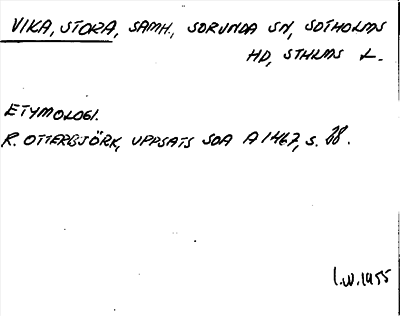 VIKA, STORA, SAMH., SORUNDA SN, SOTHOLMS
HD, STHLMS L.
ETYMOLOGI.
R. OTTERBJÖRK, UPPSATS SOA A 1467, S. 38.
I.W. 1955